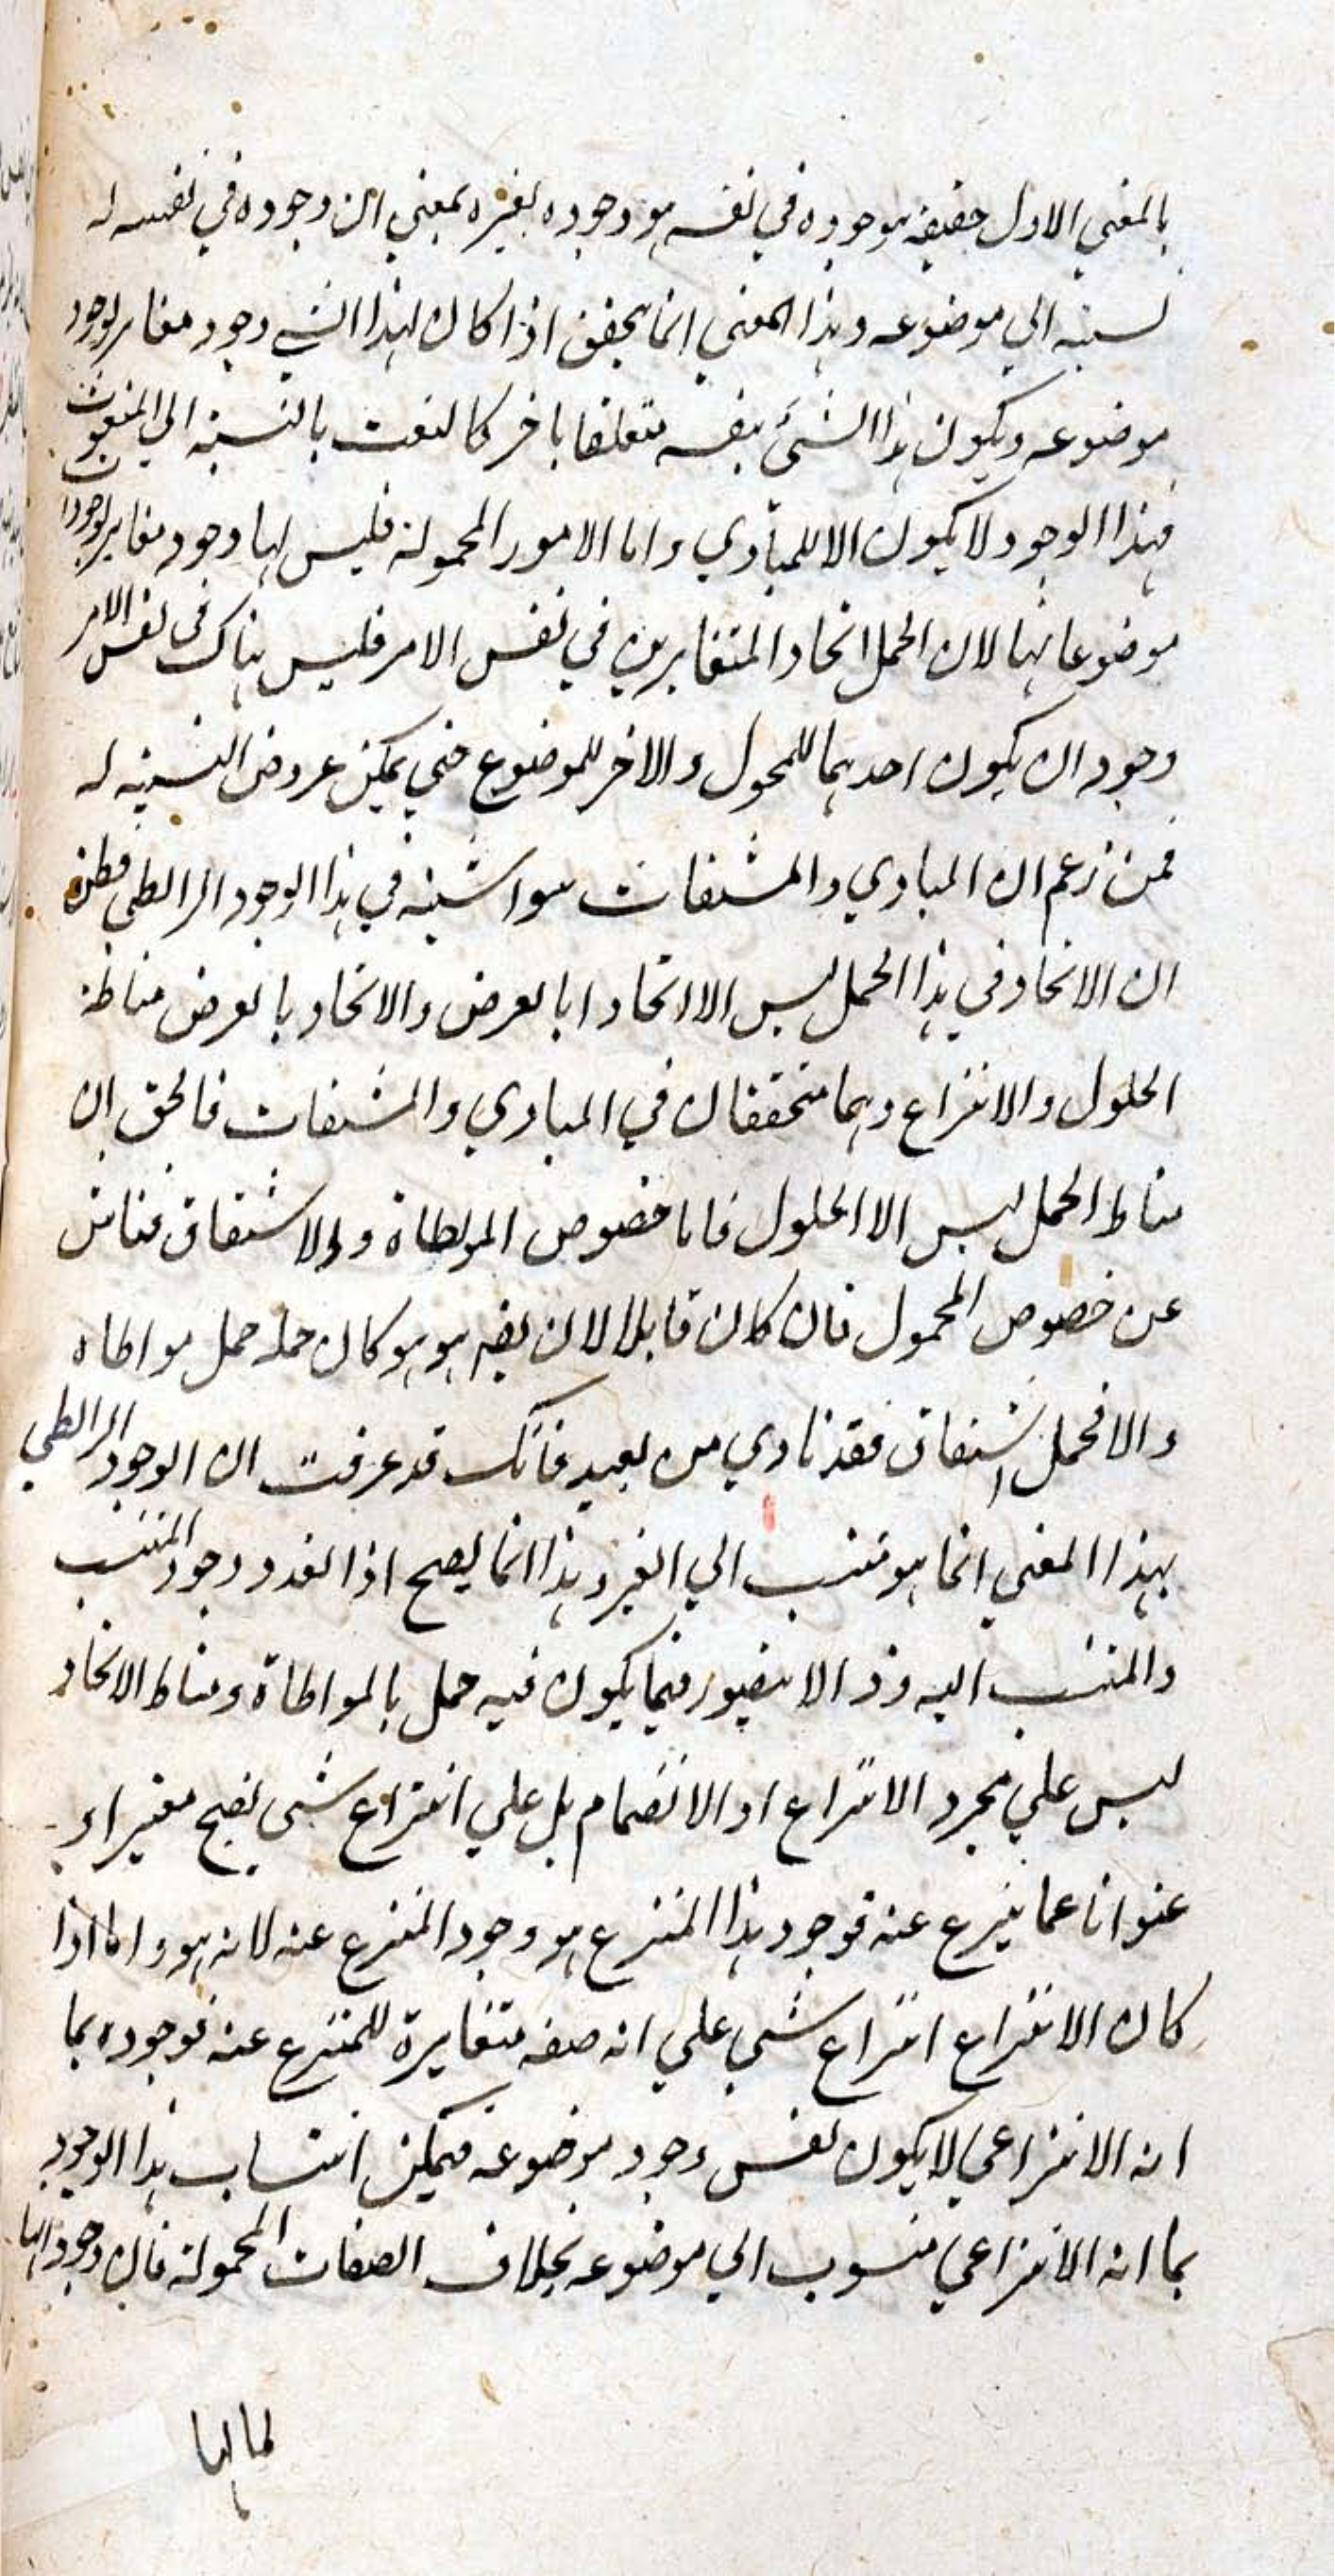 بالمعني الاول حقيقة بوجوده في نفسه هو وجوده لغيره بمعني ان وجوده في نفسه له
نسبة الي موضوعه وهذا المعني انما يتحقق اذا كان لهذا الشي وجود مغاير لوجود
موضوعه ويكون هذا الشئ بنفسه متعلقا باخر كالنعت بالنسبة الي المنعوت
فهذا الوجود لا يكون الا للمبادي واما الامور المحمولة فليس لها وجود مغاير لوجود
موضوعاتها لان الحمل اتحاد المتغايرين في نفس الامر فليس هناك في نفس الامر
وجودان يكون احدهما للمحمول والاخر للموضوع حتي يمكن عروض النسبة له
فمن زعم ان المبادي والمشتقات سواسية في هذا الوجود الرابطي فظن
ان الاتحاد في هذا الحمل ليس الا اتحادا بالعرض والاتحاد بالعرض مناطه
الحلول والانتزاع وهما متحققان في المبادي والمشتقات فالحق ان
مناط الحمل ليس الا الحلول فاما خصوص المواطاة والاشتقاق فناش
عن خصوص المحمول فان كان قابلا لان هو هو كان حمله حمل مواطاه
والا فحمل اشتقاق فقد نادي من بعيد فانك قد عرفت ان الوجود الرابطي
بهذا المعني انما هو منتسب الي الغير وهذا انما يصح اذا تعدد وجود المنتسب
والمنتسب اليه وذا لا يتصور فيما يكون فيه حمل بالمواطاة ومناط الاتحاد
ليس علي مجرد الانتزاع او الانضمام بل علي انتزاع شي يصح معبرا و
عنوانا عما ينتزع عنه فوجود هذا المنتزع هو وجود المنتزع عنه لانه هو واما اذا
كان الانتزاع انتزاع شي علي انه صفه متغايرة للمنتزع عنه فوجوده بما
انه الانتزاعي لا يكون نفس وجود موضوعه فيمكن انتساب هذا الوجود
بما انه الانتزاعي منسوب الي موضوعه بخلاف الصفات المحمولة فان وجودها
لمالها